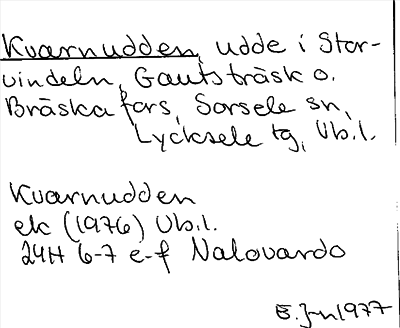 Kvarnudden, udde i Stor-
vindeln, Gautsträsk o.
Bräska fors, Sorsele sn,
Lycksele tg, Vb.l.
Kvarnudden
ek (1976) Vb.l.
24H 6-7 e-f Nalovardo
1977